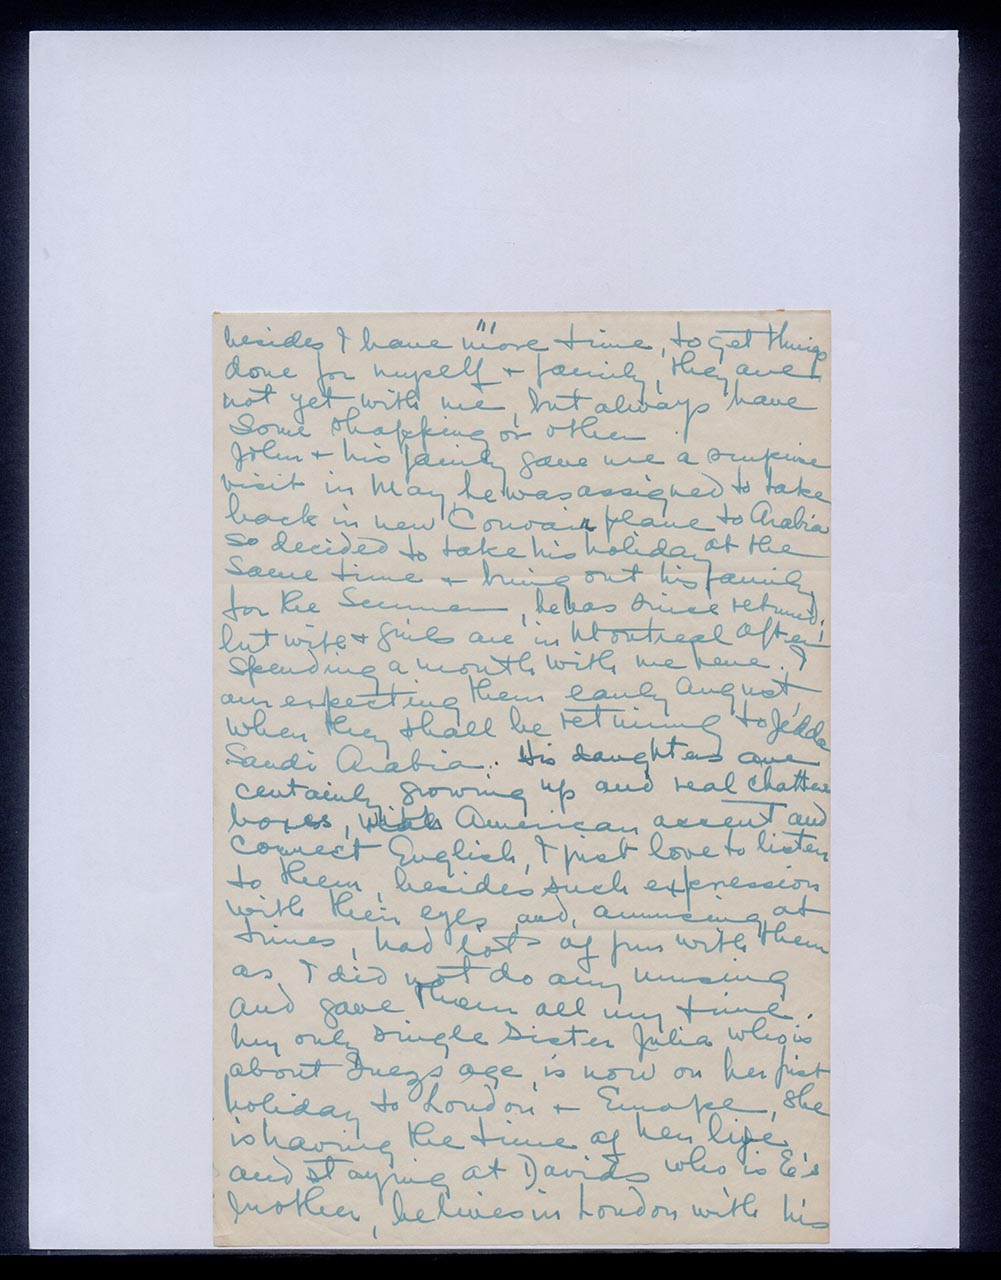 besides I have more time, to get things
done for myself + family, they are
not yet with me, but always have
some shopping or other.
John + his family gave me a surprise
visit in May, he was assigned to take
back in new Convair plane to Arabia
so decided to take his holiday at the
same time + bring out his family
for the Summer, he has since returned.
but wife + girls are in Montreal after
spending a month with me here. I
am expecting them early August,
when they shall be returning to Jedda
Saudi Arabia. His daughters are
certainly growing up and real chatter
boxes, with American accent and
correct English, I just love to listen
to them, besides such expression
with their eyes, and, amusing at
times, had lots of fun with them
as I did not do any nursing
and gave them all my time.
My only single sister Julia who is
about Inez's age, is now on her first
holiday to London + Europe, she
is having the time of her life
and staying at Davids who is E's
brother, he lives in London with his